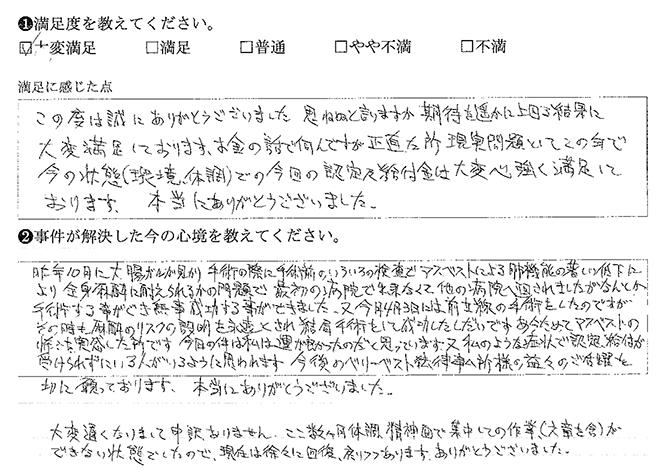 ❶満足度を教えてください。
☑大変満足 □満足 □普通 □やや不満 □不満
満足に感じた点
この度は誠にありがとうございました 思わぬと言いますか 期待を遥かに上回る結果に
大変満足しております、お金の話で何んですが正直な所 現実問題としてこの年で
今の状態(環境、体調)での今回の認定及給付金は大変心強く満足して
おります、 本当にありがとうございました。
❷事件が解決した今の心境を教えてください。
昨年10月に大腸がんが見つかり 手術の際に手術前のいろいろの検査で アスベストによる肺機能の著しい低下に
より 全身麻酔に耐えられるかの問題で 最初の病院で出来なくて 他の病院へ回されましたがなんとか
手術する事ができ無事成功する事ができました、又今年4月3日には前立線の手術をしたのですが
その時も麻酔のリスクの説明を永遠とされ 結局手術をして成功したしだいです あらためてアスベストの
怖さを実感した所です 今回の件は私は運が良かったのだと思っています 又 私のような症状で認定、給付が
受けられずにいる人がいるように思われます 今後のベリーベスト法律事ム所様の益々のご活躍を
切に願っております、 本当にありがとうございました。
大変遅くなりまして申訳ありません、ここ数ヶ月体調、精神面で集中しての作業、(文章を含)が
できない状態でしたので、現在は徐々に回復、戻りつつあります、ありがとうございました。